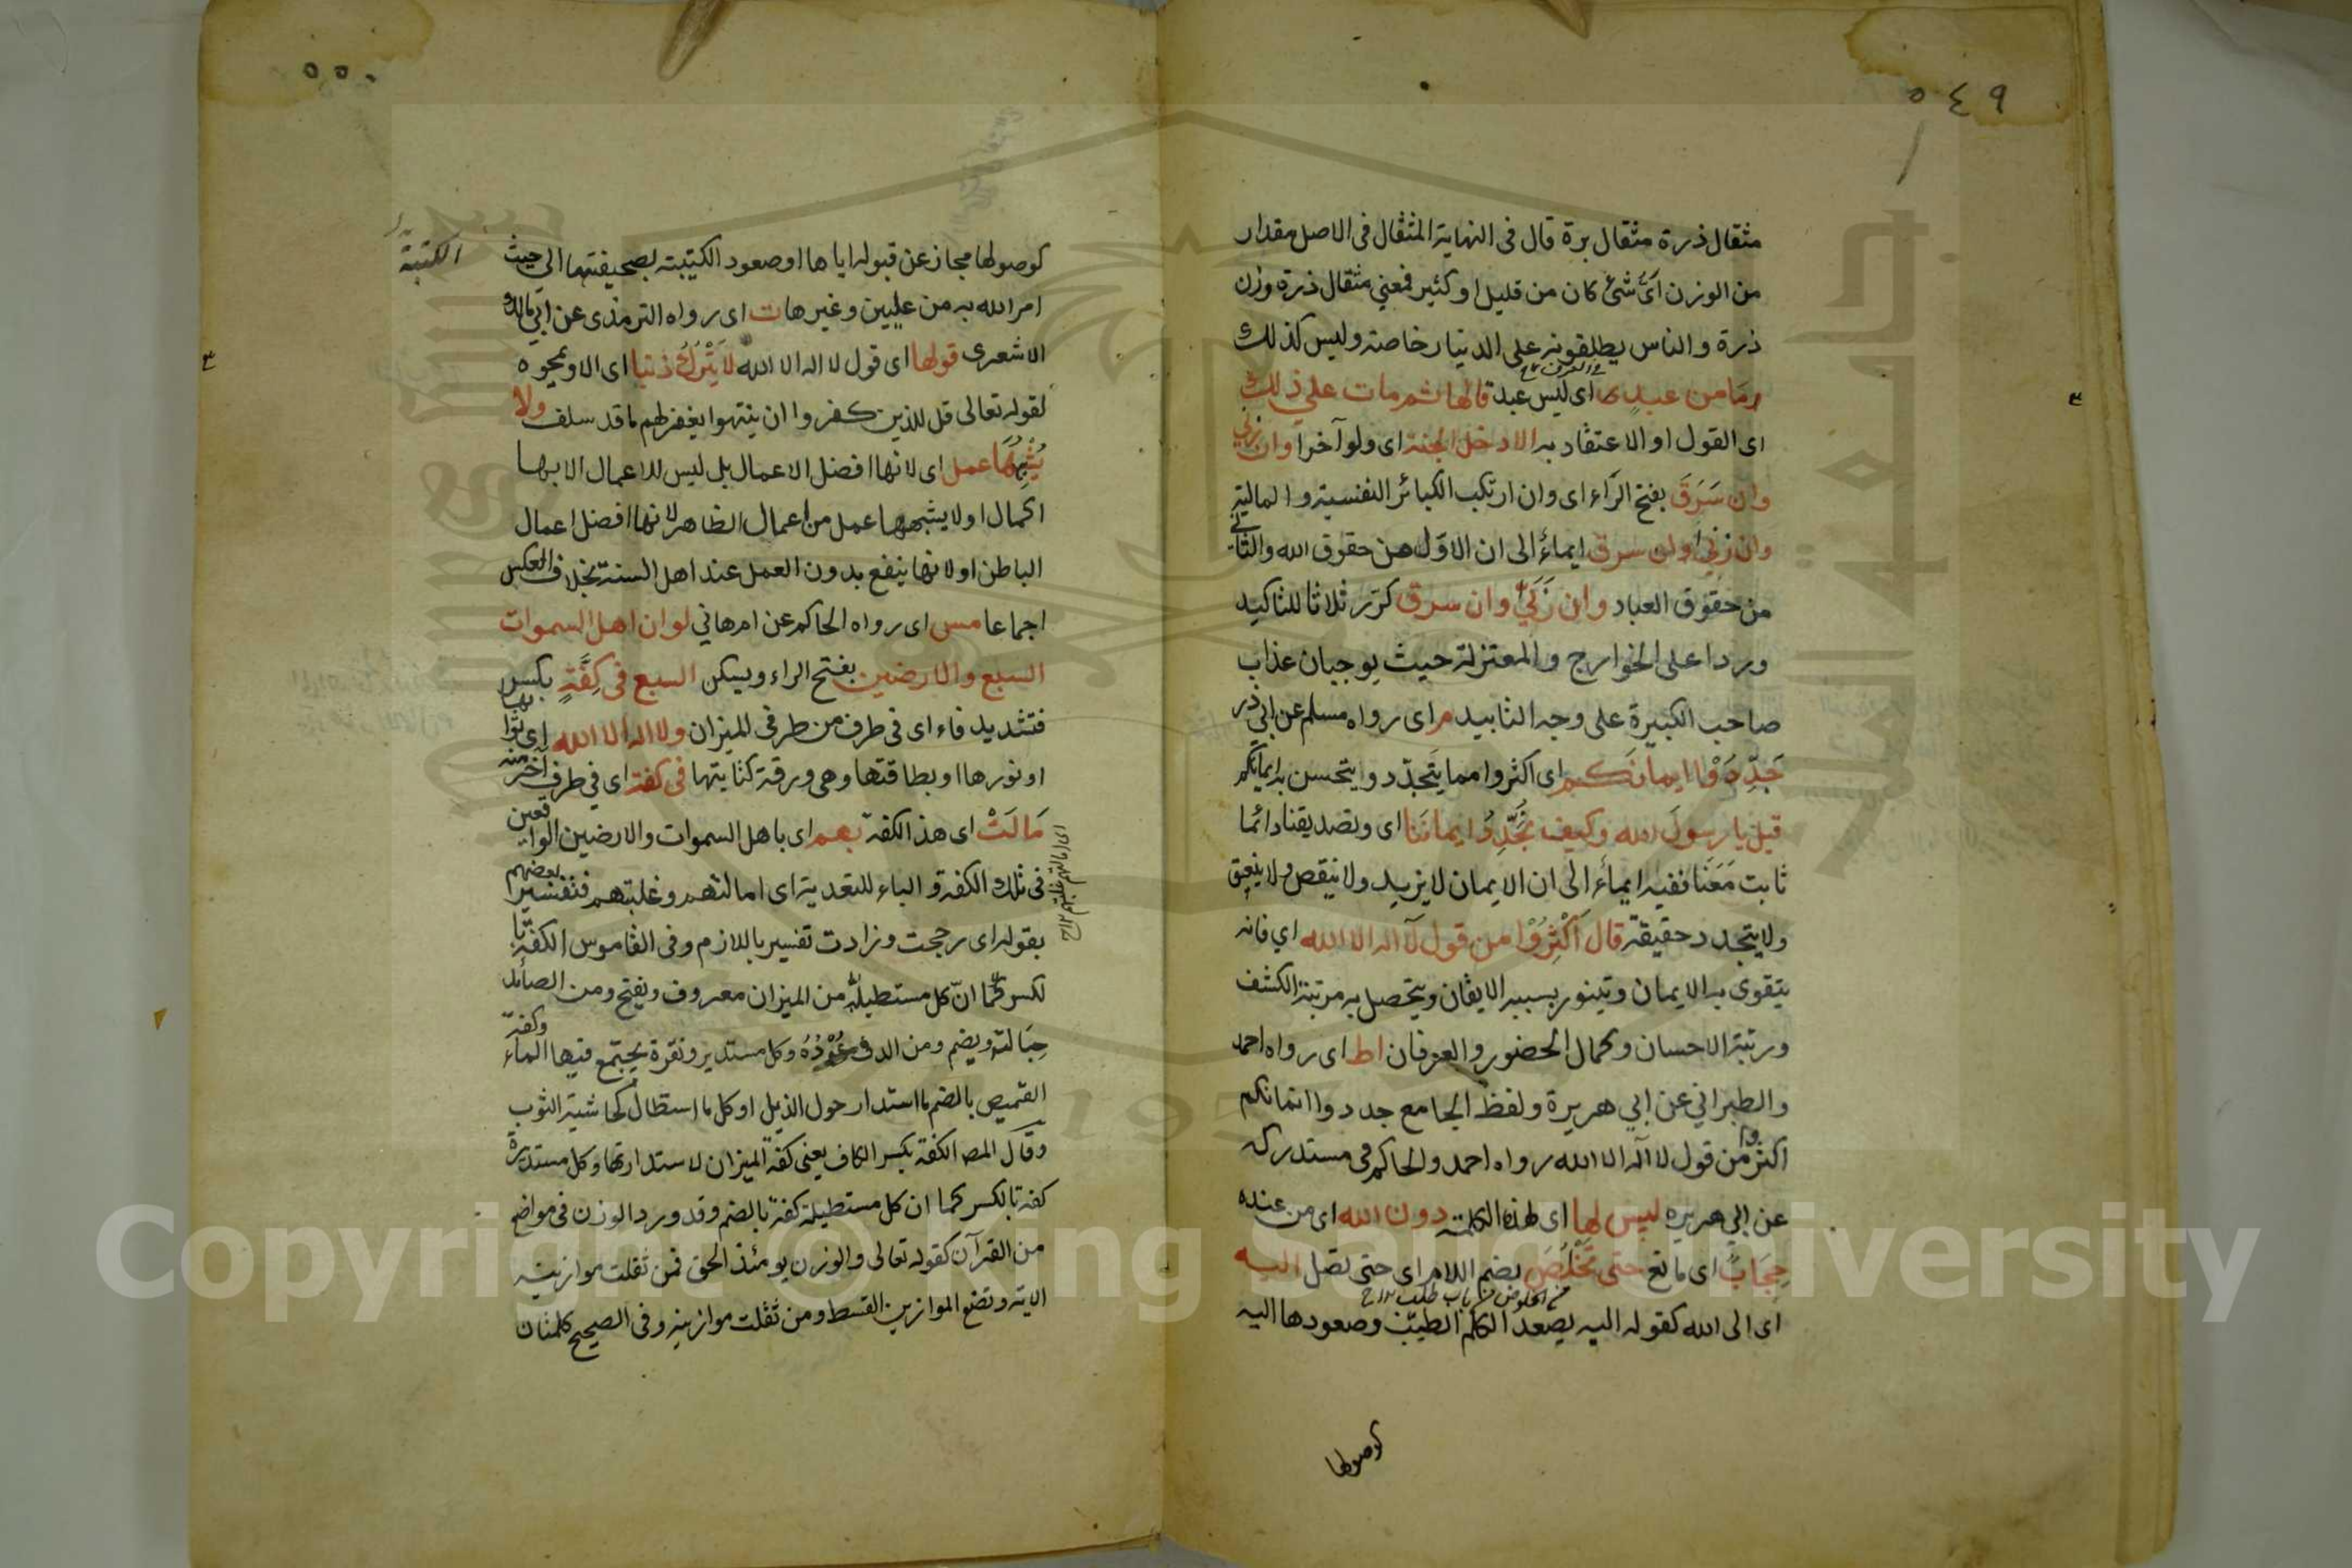 ٥٤٩
مثقال ذرة مثقال برة قال فى النهاية المثقال فى الاصل مقدار
من الوزن اَىّ شئ كان من قليل او كثير فمعني مثقال ذرة وزن
ذرة والناس يطلقونه على الدينار خاصة وليس كذلك
وما من عبدٍ اى ليس عبد قالها ثم مات على ذلك
اى القول او الاعتقاد به الا دخل الجنة اى ولو آخرا وان زني
وان سَرَقَ بفتح الرّاء اى وان ارتكب الكبائر النفسية والمالية
وان زني وان سرق ايماءٌ الى ان الاوّل من حقوق الله والثاني
من حقوق العباد وان زَنَي وان سرق كرّر ثلاثا للتاكيد
وردا على الخوارج والمعتزلة حيث يوجبان عذاب
صاحب الكبيرة على وجه التابيد م اى رواه مسلم عن ابي ذر
جَدِّدُوْا ايمانكم اى اكثروا مما يتجدّد و يتحسن به ايمانكم
قيل يا رسولَ الله وكيف نُجَدِّدُ ايماننا اى وتصديقنا دائما
ثابت مَعَنا ففيه ايماءٌ الى ان الايمان لا يزيد ولا ينقص ولا
ولا يتجدد حقيقة قال اَكْثِرُوْا من قول لآ اله الا الله اي فانه
يتقوى به الايمان ويتنور بسببه الايقان ويتحصل به مرتبة الكشف
ورتبة الاحسان وكمال الحضور والعرفان اط اى رواه احمد
والطبراني عن ابي هريرة ولفظ الجامع جددوا ايمانكم
اكثروا من قول لا اله الا الله رواه احمد والحاكم فى مستدركه
عن ابي هريره ليس لها اى لهذه الكلمة دون الله اى من عنده
حِجَابٌ اى مانع حتى تَخْلُصَ بضم اللام اى حتى تصل اليه
من الخلوص من باب طلب
اى الى الله كقوله اليه يصعد الكلم الطيّب وصعودها اليه
كوصولها
٥٥٠
كوصولها مجاز عن قبوله اياها او صعود الكتيبة بصحيفتها الى حيث
الكتبة
امر الله به من عليين وغيرها ت اى رواه الترمذى عن ابي مالك
الاشعرى قولها اى قول لا اله الا الله لا يَتْرُكُ ذنبا اى الا ويمحوه
لقوله تعالى قل للذين كفروا ان ينتهوا يغفر لهم ما قد سلف ولا
يُشْبِهُهَا عمل اى لانها افضل الاعمال بل ليس للاعمال الا بها
اكمال او لا يشبهها عمل من اعمال الظاهر لانها افضل اعمال
الباطن او لانها ينفع بدون العمل عند اهل السنة بخلاف العكس
اجماعا مس اى رواه الحاكم عن ام هاني لو ان اهل السموات
السبع والارضين بفتح الراء ويسكن السبع فى كِفَّةٍ بكسر
فتشديد فاء اى فى طرف من طرفى الميزان ولا اله الا الله اى ثوابها
او نورها او بطاقتها وهى ورقة كتابتها فى كفة اى في طرف آخر منه
مَالَتْ اى هذ الكفة بهم اى باهل السموات والارضين الواقعين
فى تلك الكفة و الباء للتعدية اى امالتهم وغلبتهم فتفسير بعضهم
بقوله اى رجحت وزادت تفسير باللازم وفى القاموس الكفة با
لكسر كما انّ كل مستطيلة من الميزان معروف ويفتح ومن الصائد
حِبَالته ويضم ومن الدف عُوْدُهُ وكل مستدير ونقرة يجتمع فيها المآء وكفة
القميص بالضم ما استدار حول الذيل او كل ما استطال كحاشية الثوب
وقال المص الكفة بكسر الكاف يعنى كفة الميزان لاستدارتها وكل مستديرة
كفة بالكسر كما ان كل مستطيلة كفة بالضم وقد ورد الوزن فى مواضع
من القرآن كقوله تعالى والوزن يومئذ الحق فمن ثقلت موازينه
الاية ونضع الموازين القسط ومن ثقلت موازينه وفى الصحيح كلمتان
Copyright © King Saud University
جامعة الملك سعود
1957